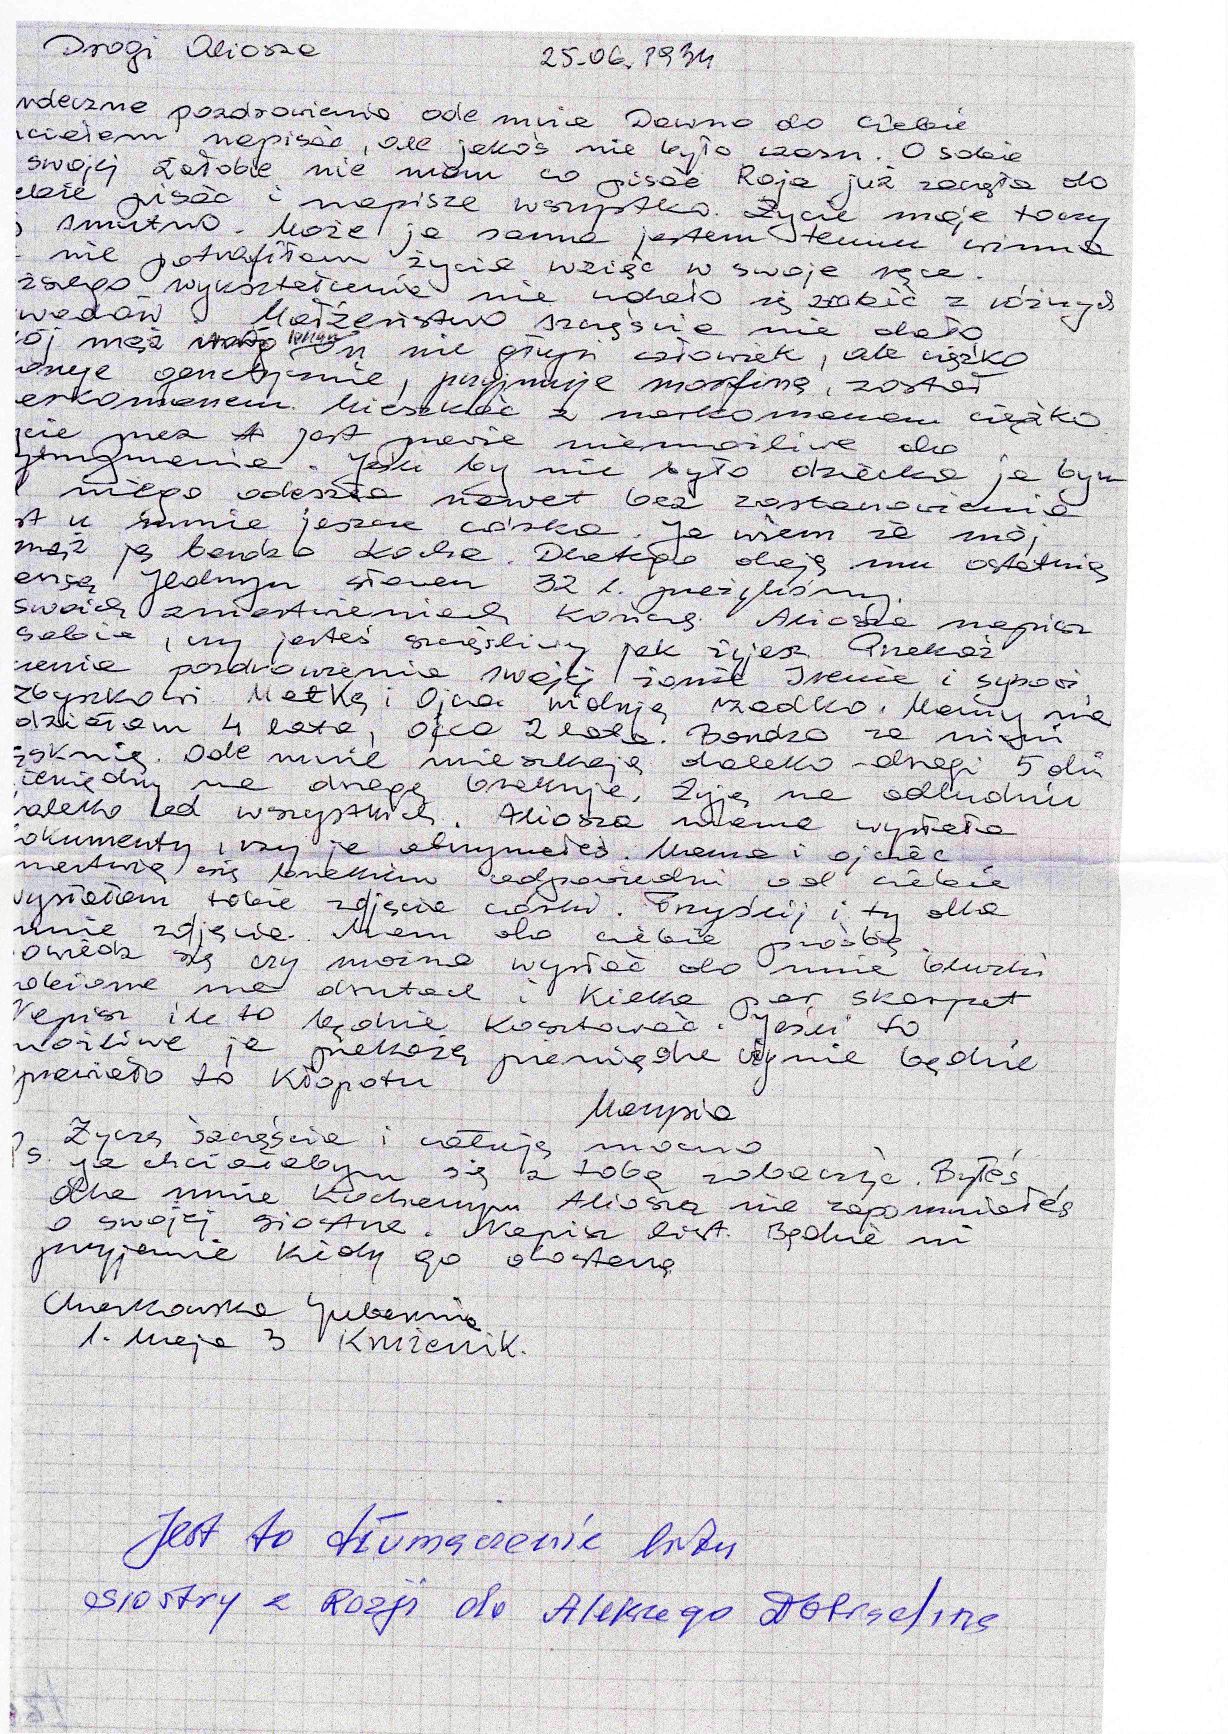 Drogi Aliosza 25.06.1934
rdeczne pozdrowienia ode mnie Dawno do ciebie
ciałam napisać, ale jakoś nie było czasu. O sobie
swojej żałobie nie mam co pisać Raja już zaczęła do
ebie pisać i napisze wszystko. Życie moje toczy
smutno. Może ja sama jestem temu winna
nie potrafiłam życia wziąć w swoje ręce.
ższego wykształcenia nie udało się zrobić z różnych
wodów. Małżeństwo szczęścia nie dało
ój mąż On nie głupi człowiek, ale ciężko
genetycznie, przyjmuje morfinę, został
arkomanem. Mieszkać z narkomanem ciężko
cie prez jest prawie niemożliwe do
. Jeśli by nie było dziecka ja bym
niego odeszła nawet bez zastanowienia
st u mnie jeszcze córka. Ja wiem że mój
mąż ją bardzo kocha. Dlatego daję mu ostatnią
ansę Jednym słowem 32 l. przeżyliśmy.
swoich zmartwieniach kończę. Aliosza napisz
sobie, czy jesteś szczęśliwy jak żyjesz. Przekaż
zenia pozdrowienia swojej żonie Irenie i synowi
Zbyszkowi. Matkę i Ojca widuję rzadko. Mamy nie
działam 4 lata, Ojca 2 lata. Bardzo za nimi
ęsknię. Ode mnie mieszkają daleko drogi 5 dni
ieniędzy na drogę brakuje. Żyję na odludziu
aleko od wszystkich. Aliosza mama wysłała
okumenty, czy je otrzymałeś. Mama i ojciec
martwią się brakiem odpowiedzi od ciebie
wysłałam tobie zdjęcie córki. Przyślij i ty dla
mnie zdjęcie. Mam do ciebie prośbę
owiedz się czy można wysłać do mnie bluzki
obione na drutach i kilka par skarpet
Napisz ile to będzie kosztować. Jeśli to
możliwe ja przekażę pieniądze czy nie będzie
prawiało to kłopotu
Marysia
Życzę szczęścia i całuję mocno
Ps. ja chciałabym się z tobą zobaczyć. Byłeś
dla mnie kochanym Aliosza nie zapomniałeś
o swojej siostrze. Napisz list. Będzie mi
przyjemnie kiedy go dostanę
Gubernia
1. Maja 3
Jest to tłumaczenie listu
osiostry z Rozji do Aleksego